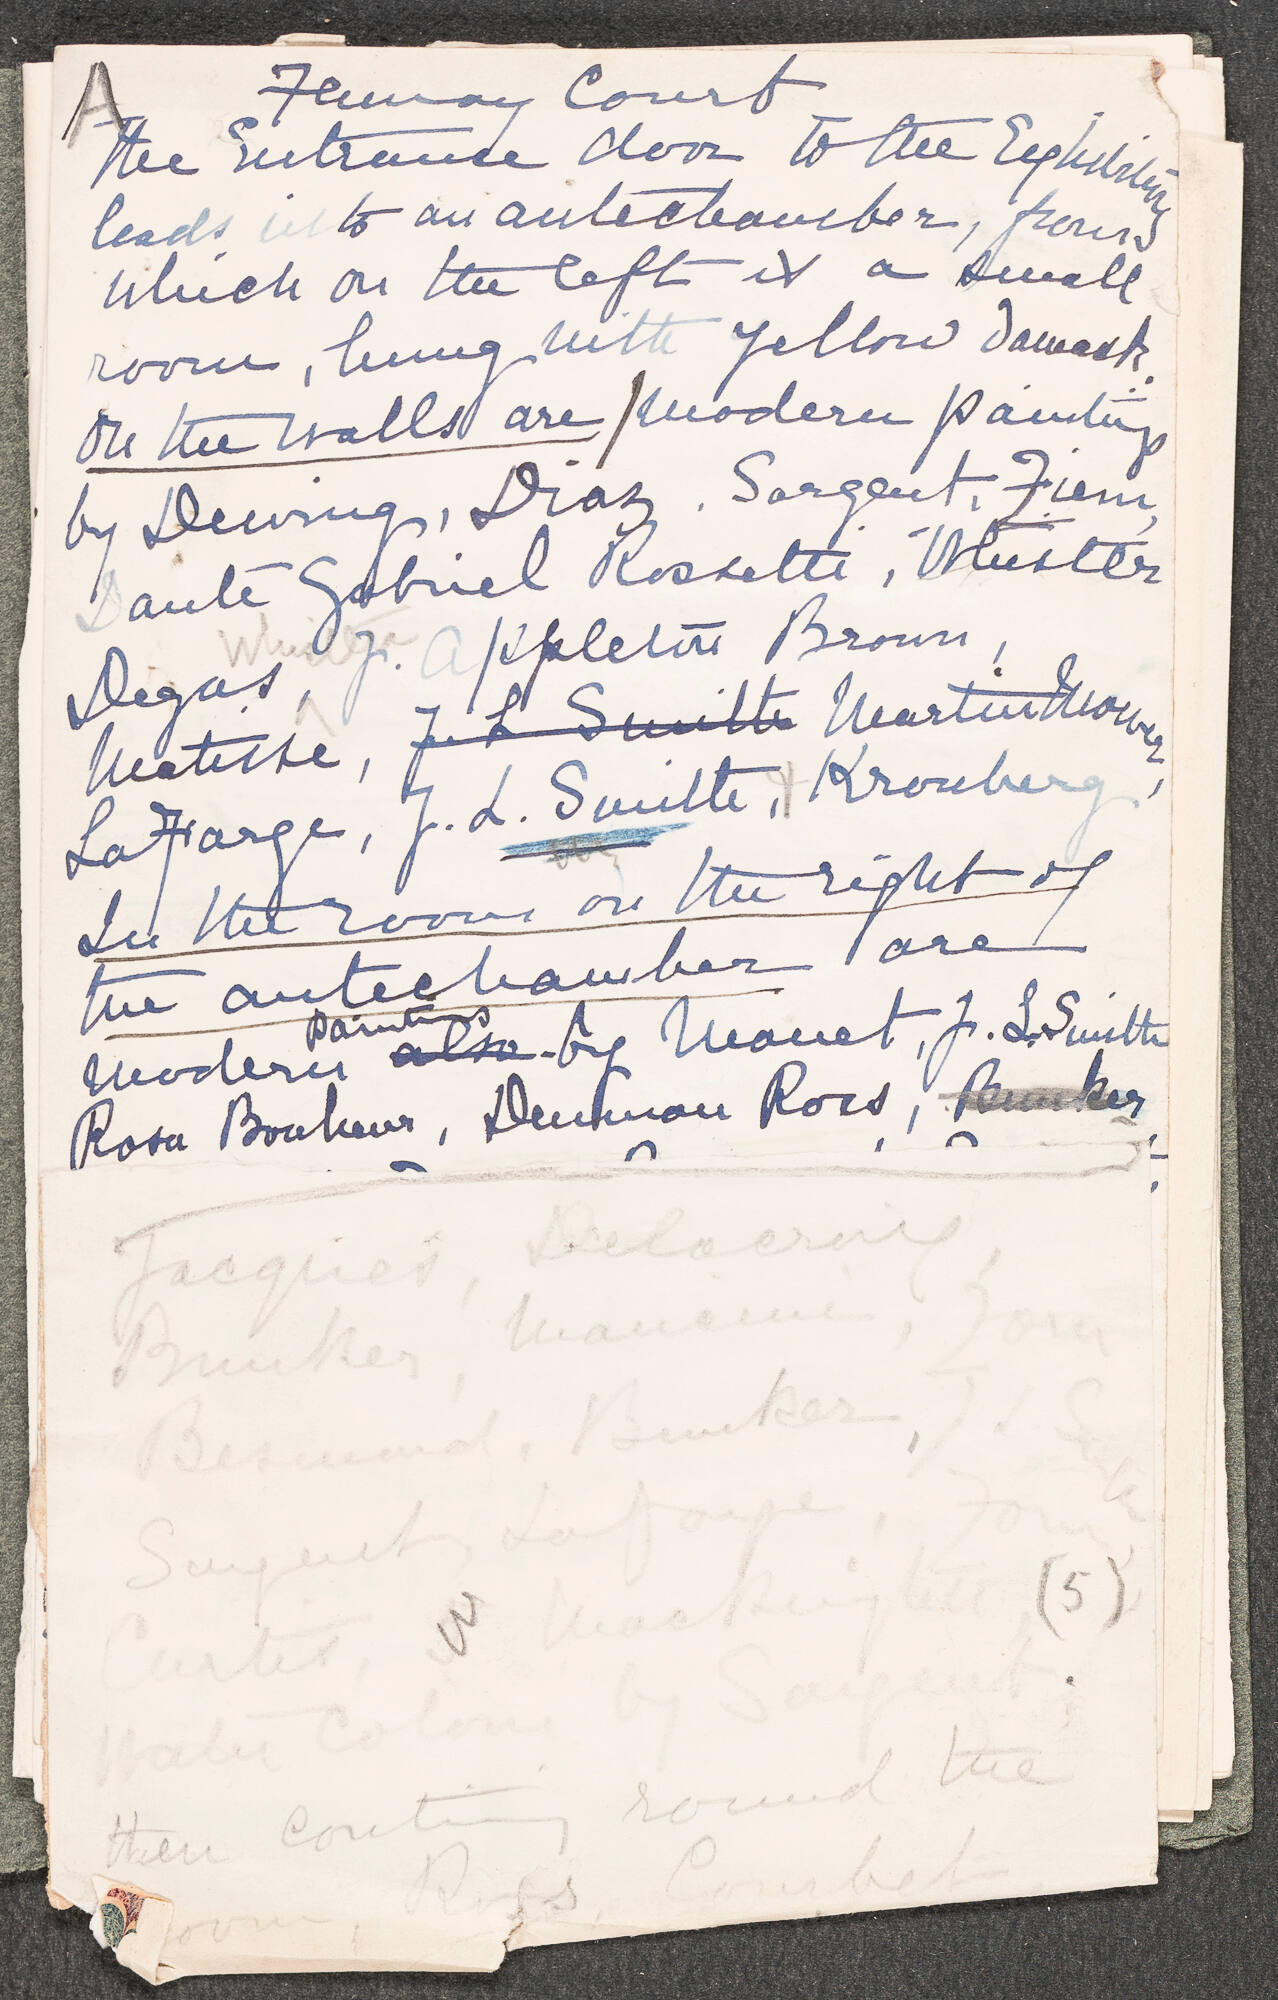 A
Fenway Court
The Entrance door to the Exhibition
leads into an antechamber, from
which on the left is a small
room, hung with yellow damask.
On the walls are / modern paintings
by Dewing, Diaz, Sargent, Ziem,
Dante Gabriel Rossetti, Whistler
Whistler
Degas, J. Appleton Brown,
Matisse, J. L. Smith Martin Mower,
La Farge, J. L. Smith, & Kronberg.
In the room on the right of
the antechamber are
paintings
modern also by Manet, J. L. Smith
Rosa Bonheur, Denman Ross, Bunker,
Jacques, Delacroix,
Bunker, Mancini, Zorn
Bunker, J L Smith
Sargent, La Farge, Zorn,
(5)
Curtis, Macknight,
Water Colour by Sargent,
then round the
room, Ross, Courbet